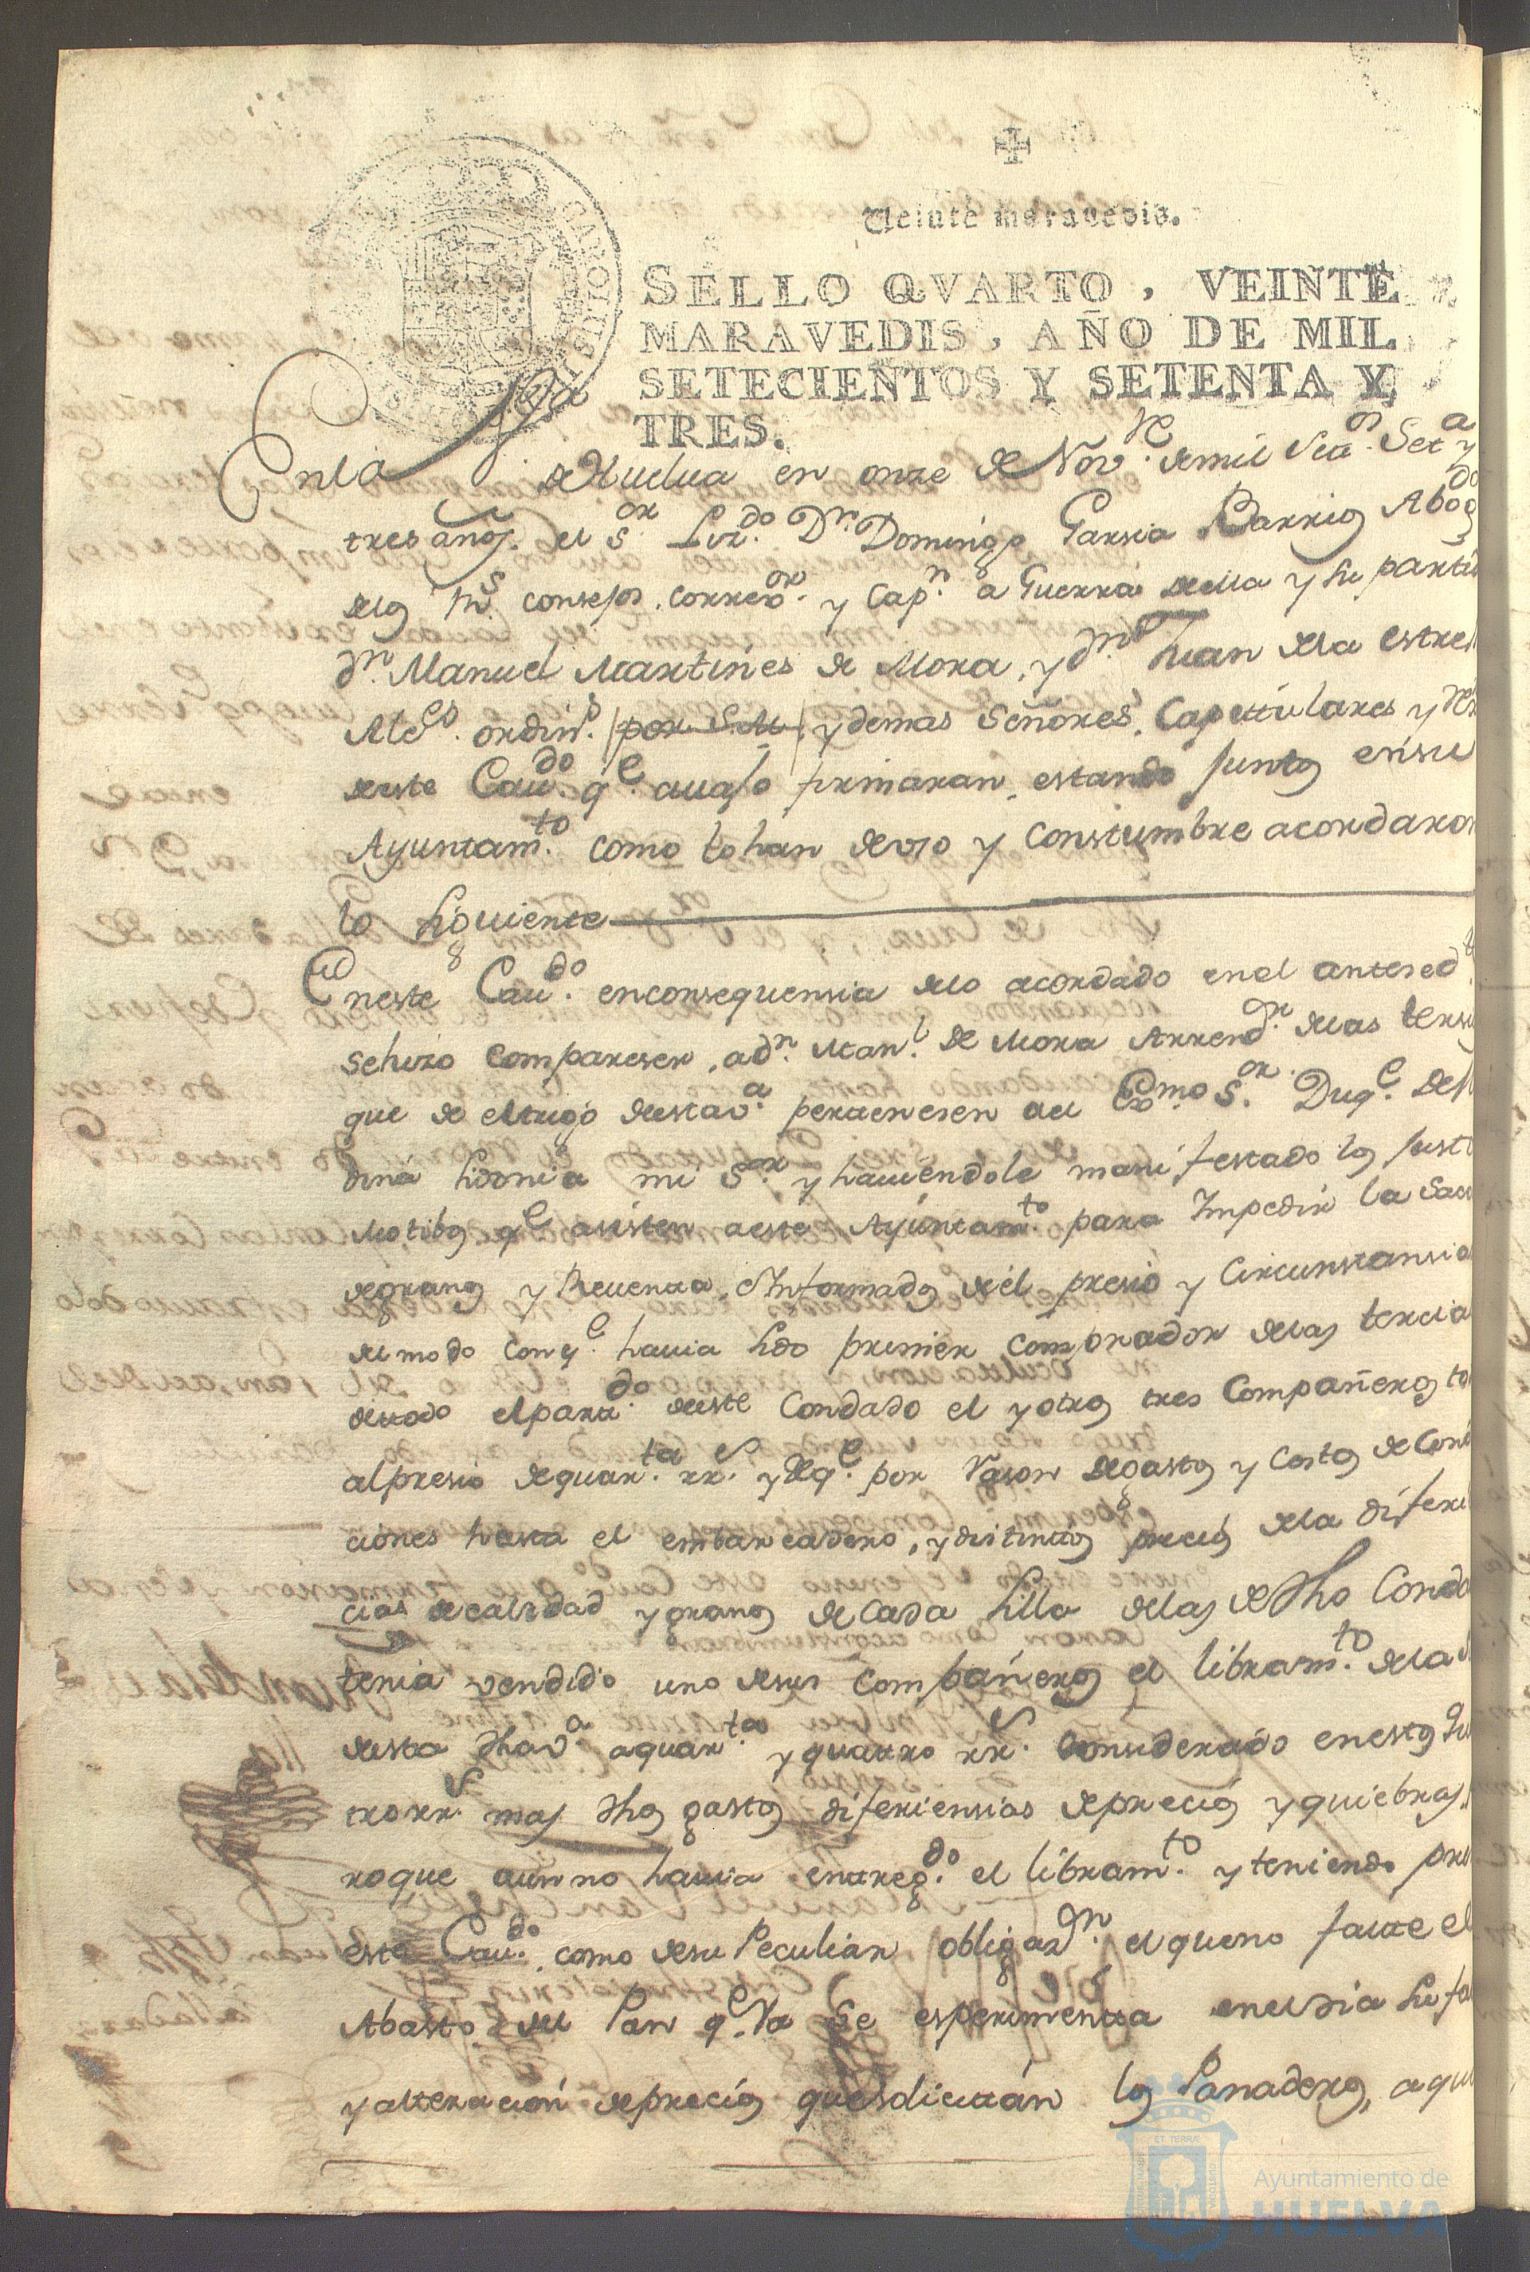 Veinte maravedis.
SELLO QVARTO, VEINTE
MARAVEDIS, AÑO DE MIL
SETECIENTOS Y SETENTA Y
TRES.
En la Villa de Huelua en onze de Nov.re de mil Setᵒˢ Set.ª y
tres años. el S.or Liz.do D.n Domingo Garsia Barrios Abogdo
de los R.s consejos, correxor. y Cap.n a Guerra de ella y su partu
d.n Manuel Martines de Mora, y d.n Juan de la Estrell
Alc.es ordin.s por S.M. y demas Señores Capitulares y
de este Cau.do q.e auajo firmaran, estando juntos en su
Ayuntam.to como lo han de vso y Constumbre acordaron
lo siguiente
En este Cau.do en consequensia de lo acordado en el antesed.te
se hizo compareser, a d.n Man.l de Mora Arrend.or de las tersi
que de el trigo de esta v.a pertenesen a el Ex.mo S.or Duq.e de M
dina Sidonia mi S.or y hauiendole manifestado los just
Motibos q.e asisten a este Ayuntam.to para Impedir la Saca
de granos y Reuenta, e Informados de él presio y Circunstansia
de modo con q.e hauia sido primer comprador de las tercia
de todo el part.do de este Condado el y otros tres Compañeros to
al presio de quar.ta rr.s y de q.e por razon de gastos y Costos de Con
ciones hasta el embarcadero, y distintos precios de la diferi
cias de calidad y granos de cada Silla de las de dho Conda
tenia vendido uno de sus Compañeros el libram.to de la
de esta dha v.a a quar.ta y quatro rr.s considerado en estos qu
tro rr.s mas dhos gastos diferiensias de precios y quiebras,
ro que aun no hauia entreg.do el libram.to y teniendo pre
este Cau.do como de su Peculiar obligaz.on el que no falte el
Abasto del Pan q.e Ya se esperimenta en el dia su fal
y alteracion de precios que solicitán los Panaderos, a qu
ET TERRA
Ayuntamiento de
HUELVA